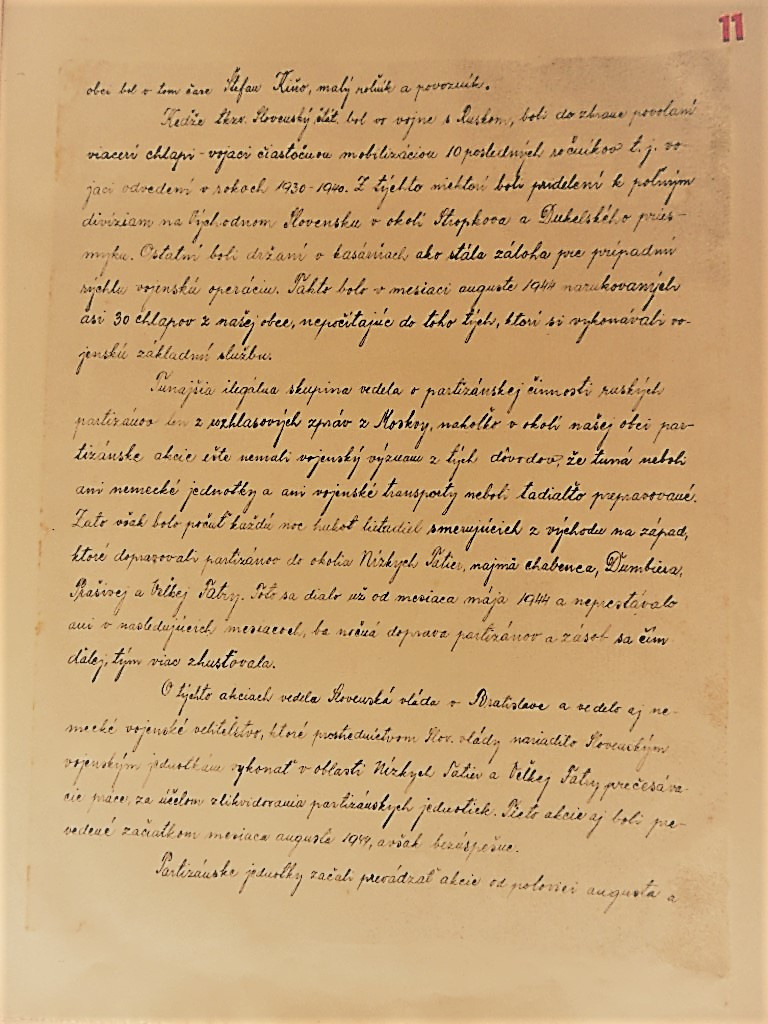 11
obce bol v tom čase Štefan Kiňo, malý roľník a povozník.
Kedže tkzv. Slovenský štát bol vo vojne s Ruskom, boli do zbrane povolaní
viacerí chlapi - vojaci čiastočnou mobilizáciou 10 posledných ročníkov t. j. vo-
jaci odvedení v rokoch 1930-1940. Z týchto niektorí boli pridelení k poľným
divíziam na Východnom Slovensku v okolí Stropkova a Dukelského pries-
myku. Ostatní boli držaní v kasárňach ako stála záloha pre prípadnú
rýchlu vojenskú operáciu. Takto bolo v mesiaci auguste 1944 narukovaných
asi 30 chlapov z našej obce, nepočítajúc do toho tých, ktorí si vykonávali vo-
jenskú základnú službu.
Tunajšia ilegálna skupina vedela o partizánskej činnosti ruských
partizánov len z rozhlasových zpráv z Moskvy, nakoľko v okolí našej obci par-
tizánske akcie ešte nemali vojenský význam z tých dôvodov, že tuná neboli
ani nemecké jednotky a ani vojenské transporty neboli tadiaľto prepravované.
Zato však bolo počuť každú noc hukot lietadiel smerujúcich z východu na západ,
ktoré dopravovali partizánov do okolia Nízkych Tatier, najmä chabenca, Ďumbiera,
Prašivej a Veľkej Fatry. Toto sa dialo už od mesiaca mája 1944 a neprestávalo
ani v nasledujúcich mesiacoch, ba nočná doprava partizánov a zásob sa čím
ďalej, tým viac zhusťovala.
O týchto akciach vedela Slovenská vláda v Bratislave a vedelo aj ne-
mecké vojenské veliteľstvo, ktoré prostredníctvom Slov. vlády nariadilo Slovenským
vojenským jednotkám vykonať v oblasti Nízkych Tatier a Veľkej Fatry prečesáva-
cie práce, za účelom zlikvidovania partizánskych jednotiek. Tieto akcie aj boli pre-
vedené začiatkom mesiaca augusta 1944, avšak bezúspešne.
Partizánske jednotky začali prevádzať akcie od polovici augusta a